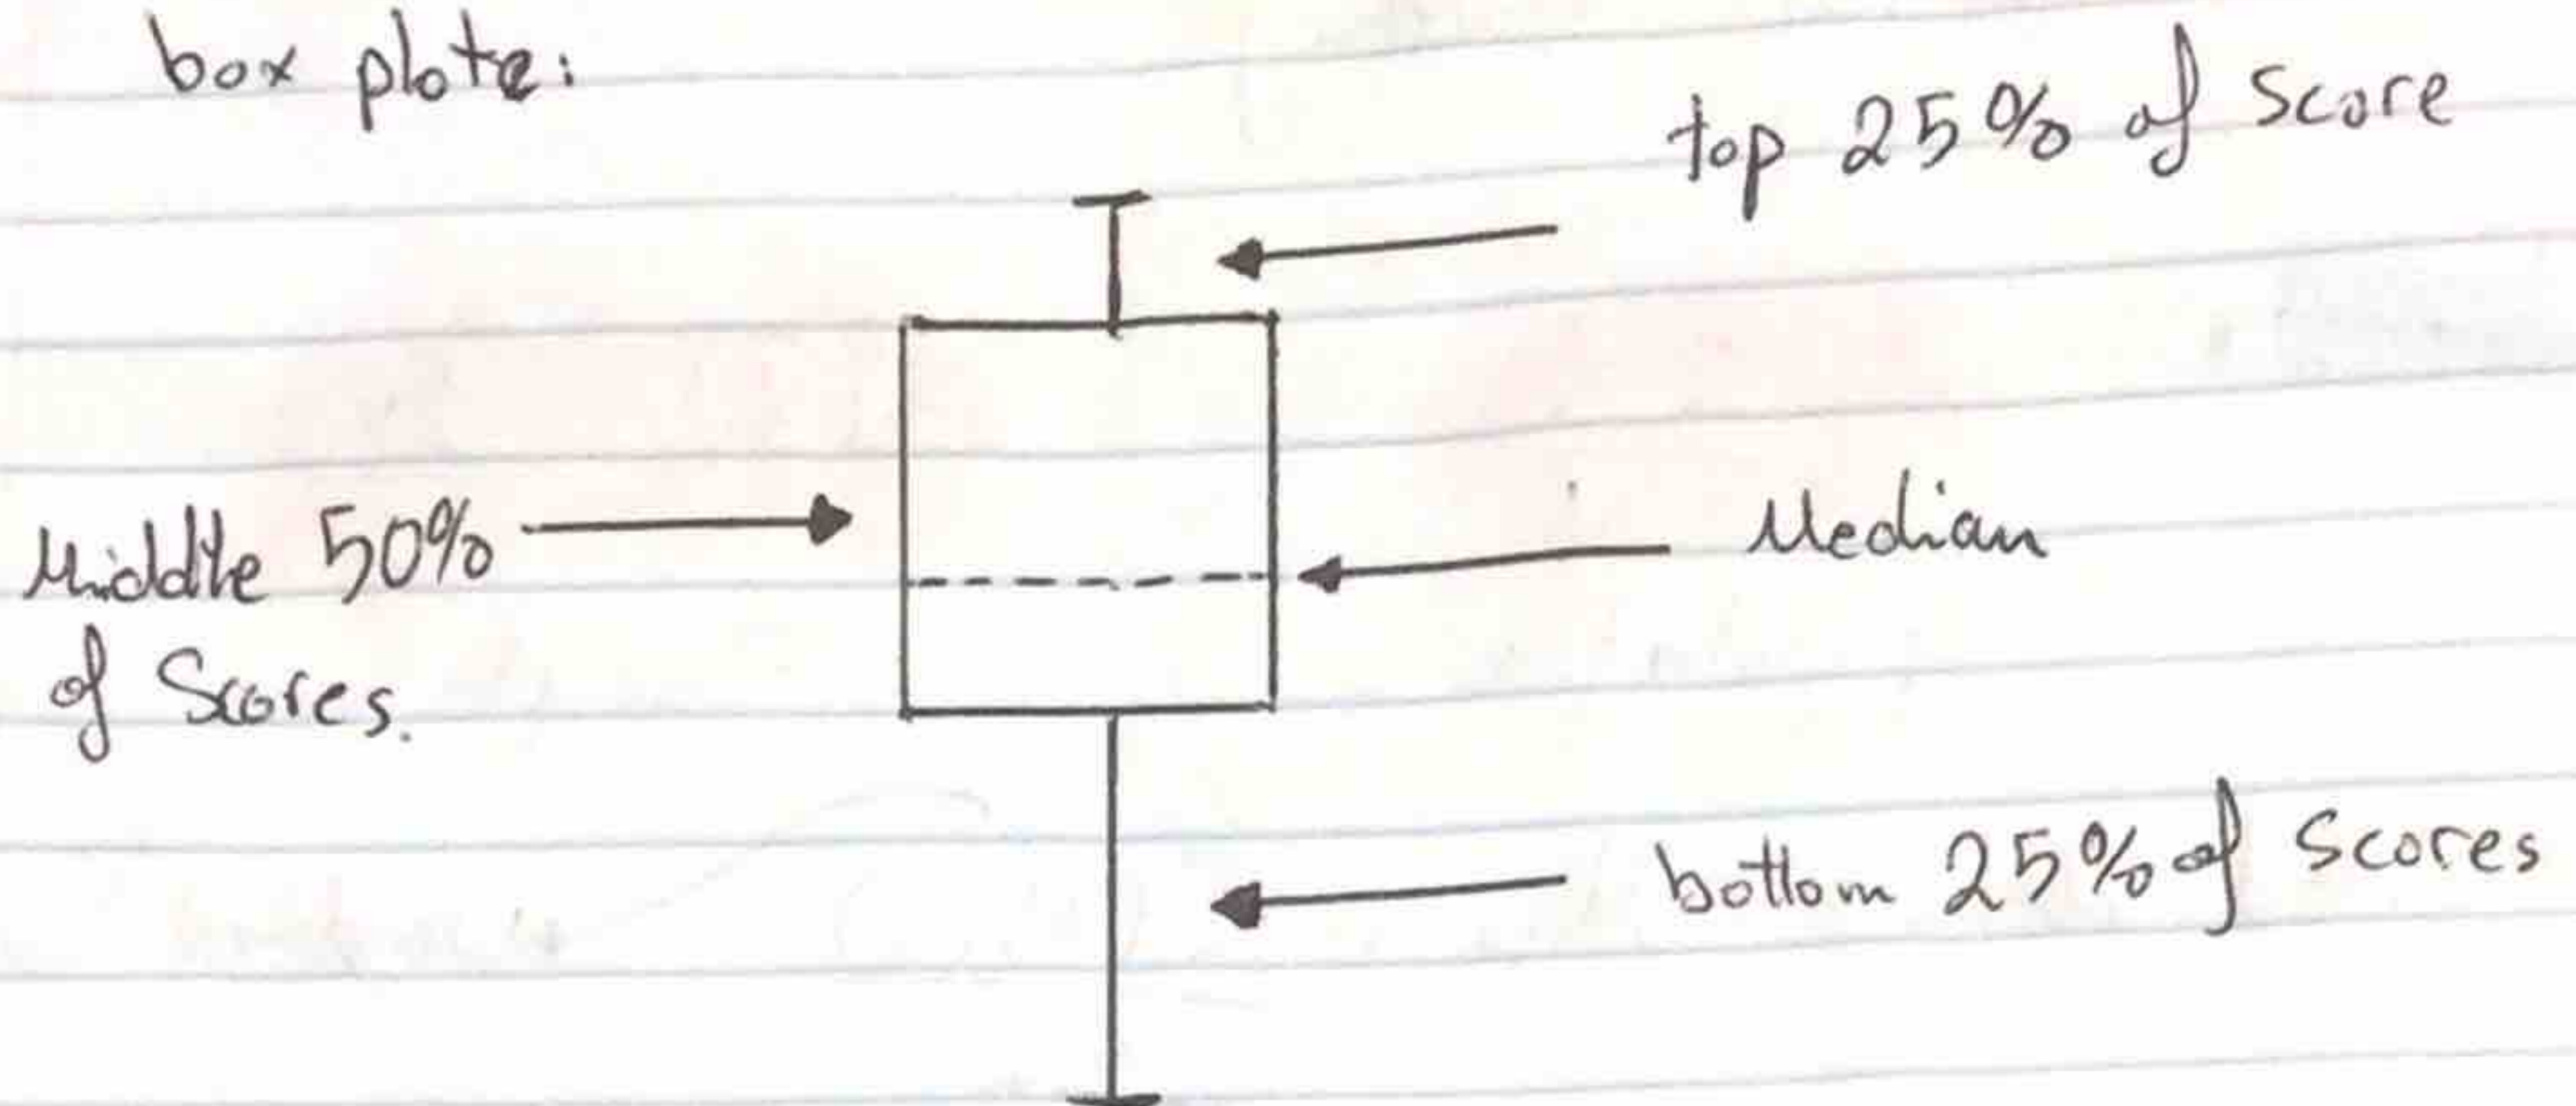 box plote:
top 25% of score
Middle 50%
of Scores.
Median
bottom 25% of scores